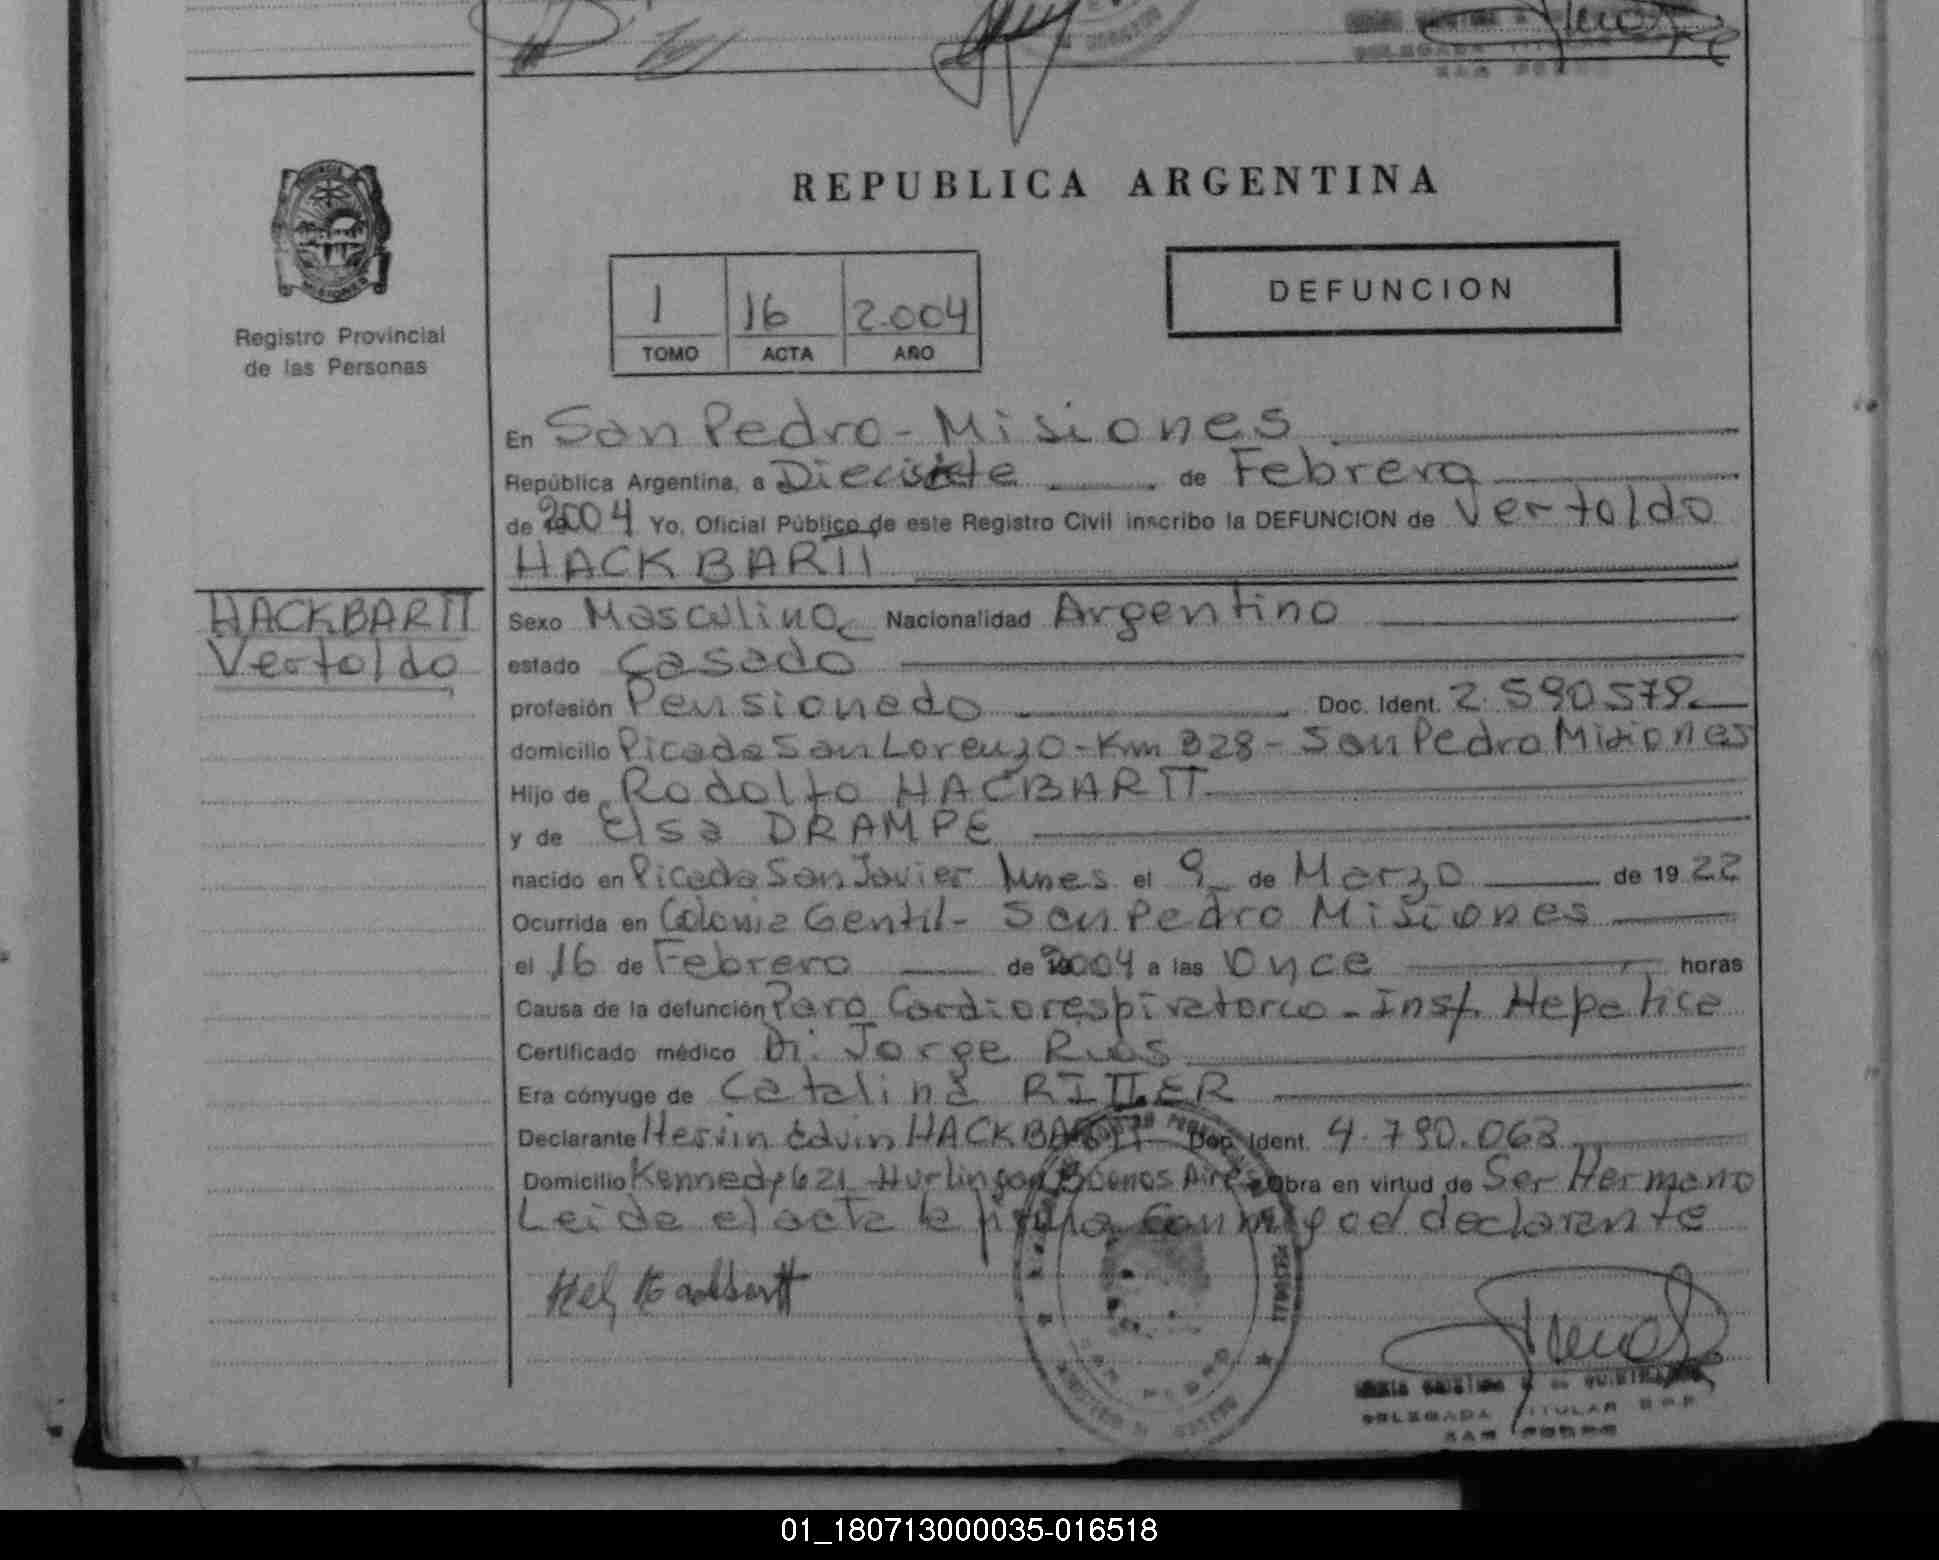 REPUBLICA ARGENTINA
Registro Provincial
de las Personas
1 16 2.004
TOMO ACTA AÑO
DEFUNCION
En San Pedro - Misiones
República Argentina, a Diecisiete de Febrero
de 2004 Yo, Oficial Público de este Registro Civil inscribo la DEFUNCION de Vertoldo
HACKBARTT
HACKBARTT
Vertoldo
Sexo Masculino Nacionalidad Argentino
estado Casado
profesión Pensionado Doc. Ident. 2.590.579
domicilio Picada San Lorenzo - Km 328 - San Pedro Misiones
Hijo de Rodolfo HACBARTT
y de Elsa DRAMPE
nacido en Picada San Javier Mnes el 9 de Marzo de 1922
Ocurrida en Colonia Gentil - San Pedro Misiones
el 16 de Febrero de 2004 a las Once horas
Causa de la defunción Paro Cardiorespiratorio - Insf. Hepatica
Certificado médico Dr. Jorge Rios
Era cónyuge de Catalina RITTER
Declarante Hervin Edvin HACKBARTT Doc. Ident. 4.790.063
Domicilio Kennedy 621 Hurlingan Buenos Aires Obra en virtud de Ser Hermano
Leida el acta la firma conmigo el declarante
Hackbartt
DELEGADA TITULAR
SAN PEDRO
01_180713000035-016518